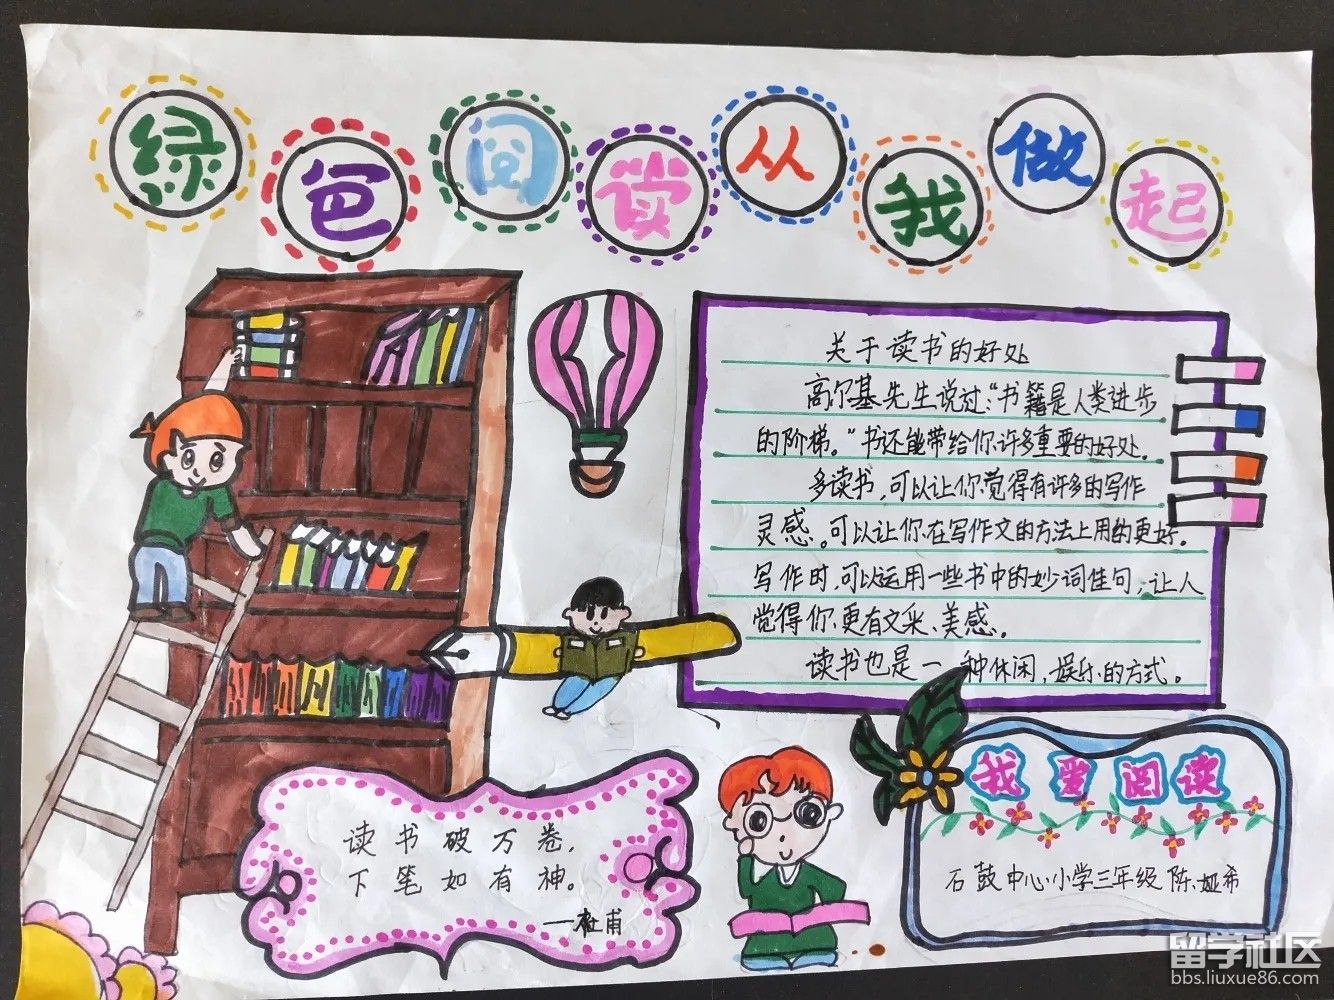 绿色阅读从我做起
关于读书的好处
高尔基先生说过:“书籍是人类进步
的阶梯。”书还能带给你许多重要的好处。
多读书,可以让你觉得有许多的写作
灵感。可以让你在写作文的方法上用的更好。
写作时,可以运用一些书中的妙词佳句,让人
觉得你更有文采、美感。
读书也是一种休闲,娱乐的方式。
读书破万卷,
下笔如有神。
——杜甫
我爱阅读
石鼓中心小学三年级 陈娅希
留学社区
bbs.liuxue86.com